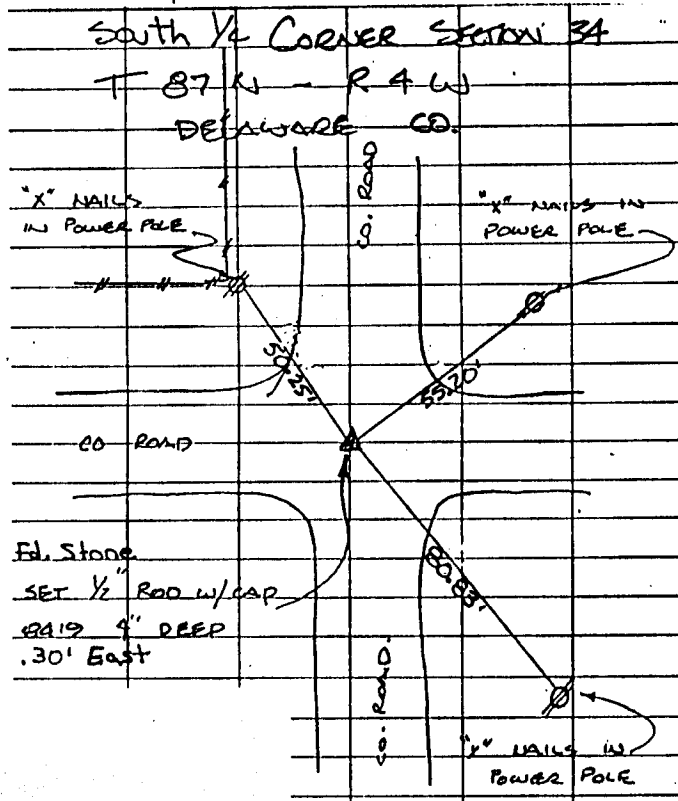 South 1/4 CORNER SECTION 34
T 87 N - R 4 W
DELAWARE CO.
"X" NAILS
IN POWER POLE
CO. ROAD
"X" NAILS IN
POWER POLE
50.25'
55.20'
CO ROAD
Fd. Stone
SET 1/2" ROD W/CAP
8419 4" DEEP
.30' East
80.83'
CO. ROAD.
"X" NAILS IN
POWER POLE